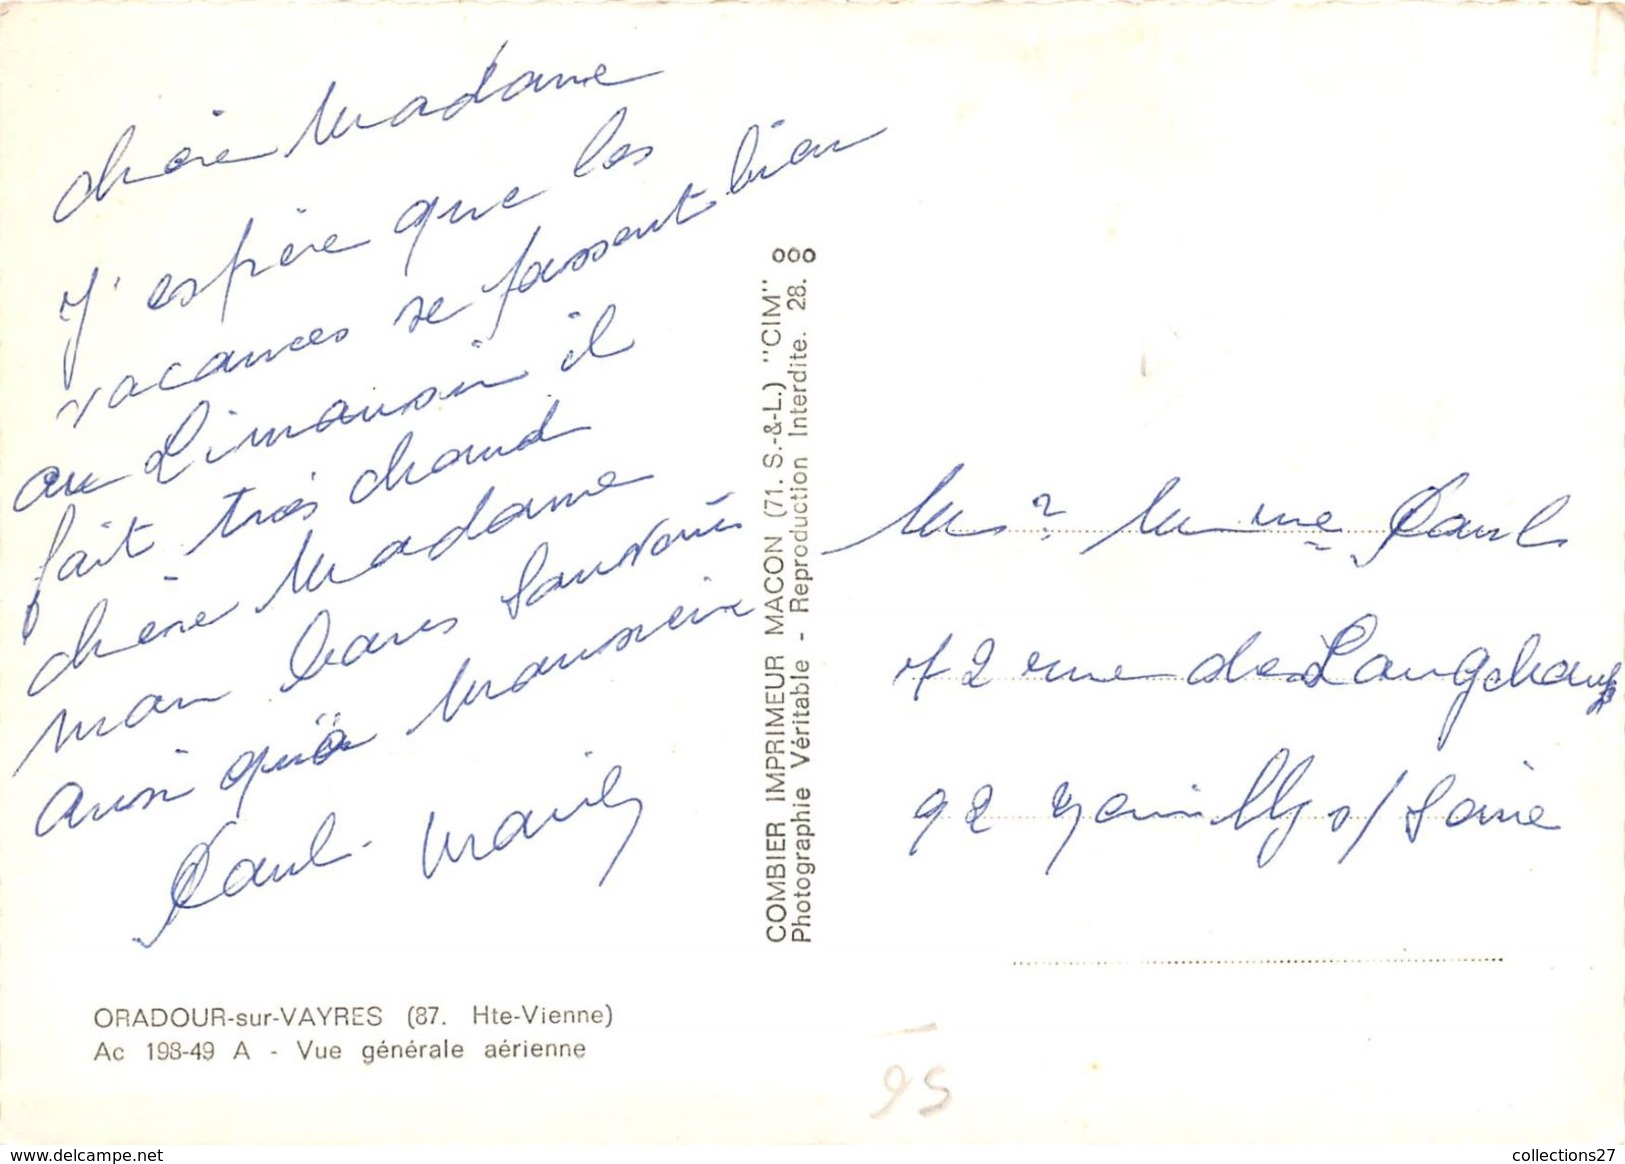 chère Madame
J'espère que les
vacances se passent bien
au Limousin il
fait très chaud
chère Madame
mon bons Souvenirs
ainsi qu'à Monsieur
Paul
COMBIER IMPRIMEUR MACON (71. S.-&-L.) "CIM"
Photographie Véritable - Reproduction Interdite. 28.
Mr Mme Paul
72 rue de Longchamp
92 Neuilly s/ Seine
ORADOUR-sur-VAYRES (87. Hte-Vienne)
Ac 198-49 A - Vue générale aérienne
95
delcampe.net
collections27